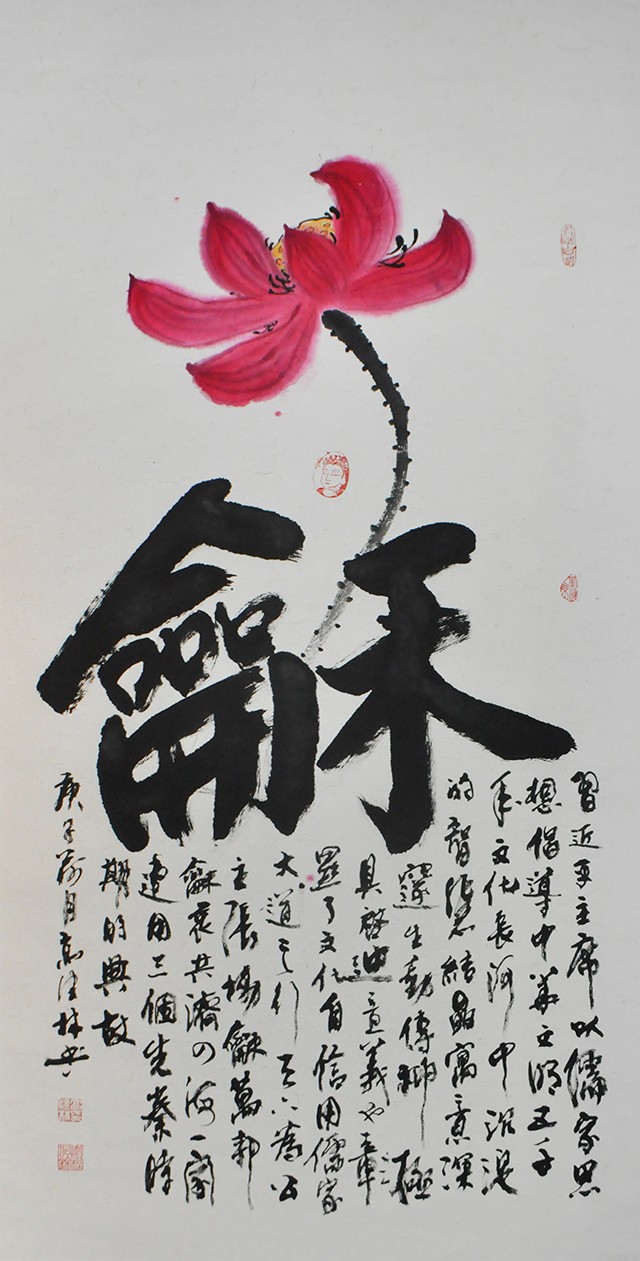 龢
習近平主席以儒家思
想倡導中華文明五千
年文化長河中沉浸
的智慧結晶寓意深
邃生動傳神極
具啓迪意義也彰
顯了文化自信用儒家
大道之行天下為公
主張協龢萬邦
龢衷共濟四海一家
連用三個先秦時
期的典故
庚子月林書